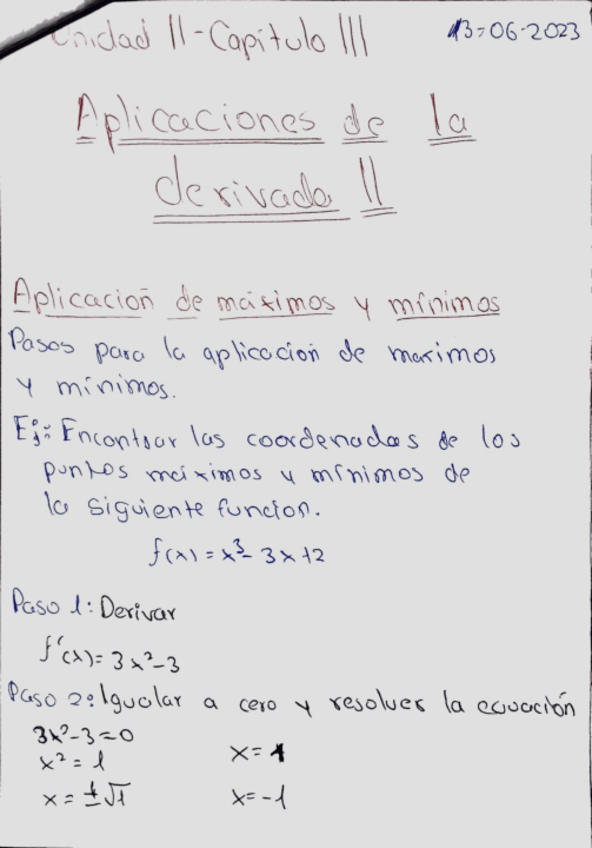 Unidad II - Capítulo III
13-06-2023
Aplicaciones de la
derivada II
Aplicación de máximos y mínimos
Pasos para la aplicación de maximos
y mínimos.
Ej: Encontrar las coordenadas de los
puntos máximos y mínimos de
la siguiente función.
f(x) = x³ - 3x + 2
Paso 1: Derivar
f'(x) = 3x² - 3
Paso 2: Igualar a cero y resolver la ecuación
3x² - 3 = 0
x² = 1
x = 1
x = ±√1
x = -1